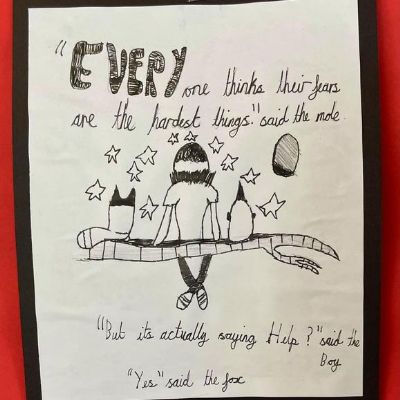 "EVERY one thinks their fears
are the hardest things." said the mole
"But its actually saying Help?" said the
Boy
"Yes" said the fox